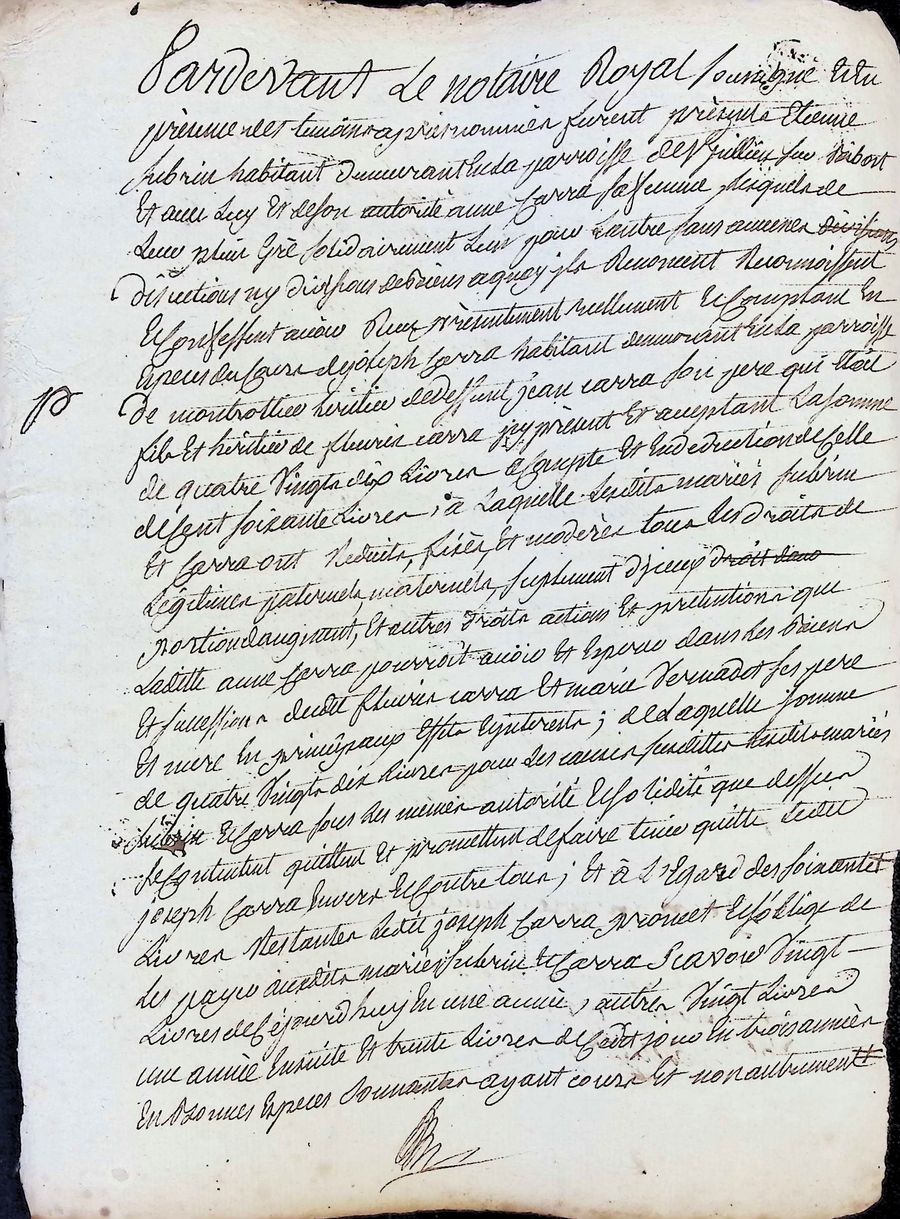 Pardevant Le notaire Royal soussigné Et En
présence des temoins apres nommés furent présents Etienne
subrin habitant demeurant En la parroisse de
Et avec luy Et de son autorité anne Carra sa femme lesquels de
Leur plein Gré solidairement L'un pour L'autre sans aucunes divisions
discutions ny divisions de biens aquoy ils Renoncent Reconnoissent
Et Confessent avoir Reçu présentement réellement Et Comptant En
Especes du Cours de joseph Carra habitant demeurant En la parroisse
De montrottier héritier de deffunt jean carra son pere qui Etoit
fils Et héritier de fleurie carra icy présent Et acceptant La somme
de quatre Vingts dix Livres a Compte Et En deduction de Celle
de Cent soixante Livres, à Laquelle Lesdits mariés subrin
Et Carra ont Reduits, fixés, Et moderés tous les Droits de
Légitimes paternels, maternels, suplement d'jceux droit dans
portion daugment, Et autres Droits actions Et prétentions que
Laditte anne Carra pourroit avoir Et Esperer dans Les biens
Et successions dudit fleurie carra Et marie Vermadet ses pere
Et mere En principaux Effets Et jnterests; de Laquelle somme
de quatre Vingts dix Livres pour Les causes susdittes Lesdits mariés
subrin Et Carra sous Les mêmes autorité Et solidité que dessus
se Contentent quittent Et promettent de faire tenir quitte Ledit
joseph Carra Envers Et Contre tous; Et à L'Egard des soixante
Livres Restantes Ledit joseph Carra promet Et s'oblige de
Les payer auxdits mariés subrin Et Carra Scavoir Vingt
Livres de Ce jourd'huy En une année, autres Vingt Livres
une année Ensuite Et trente Livres de Cedit jour En trois années
En Bonnes Especes sonnantes ayant cours Et non autrement